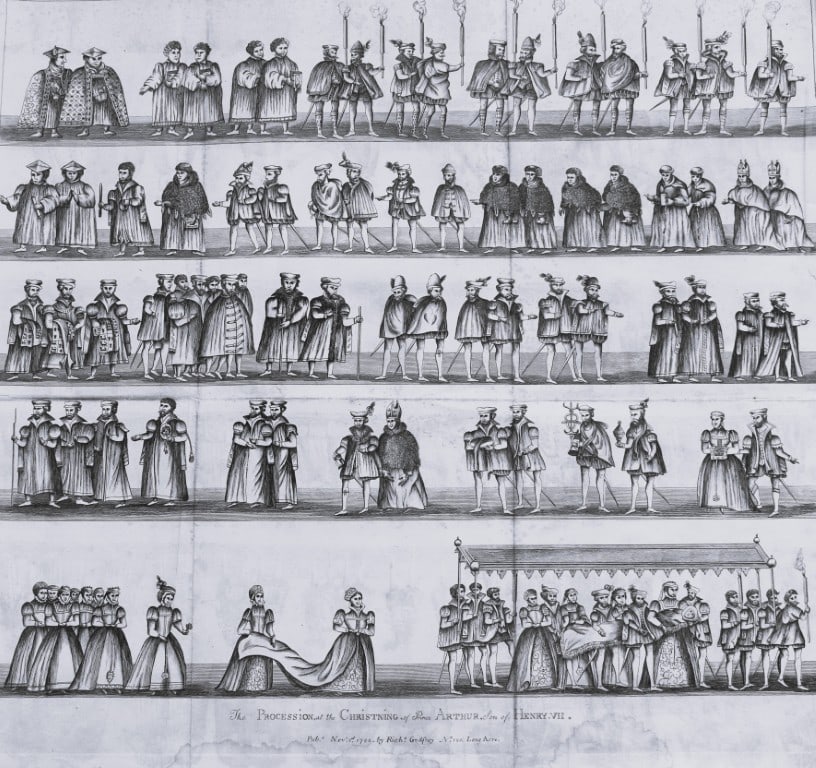 The PROCESSION at the CHRISTNING of Prince ARTHUR, Son of HENRY VII.
Pub.d Nov.r 1st by Rich.d Godfrey No. 120, Long Acre.